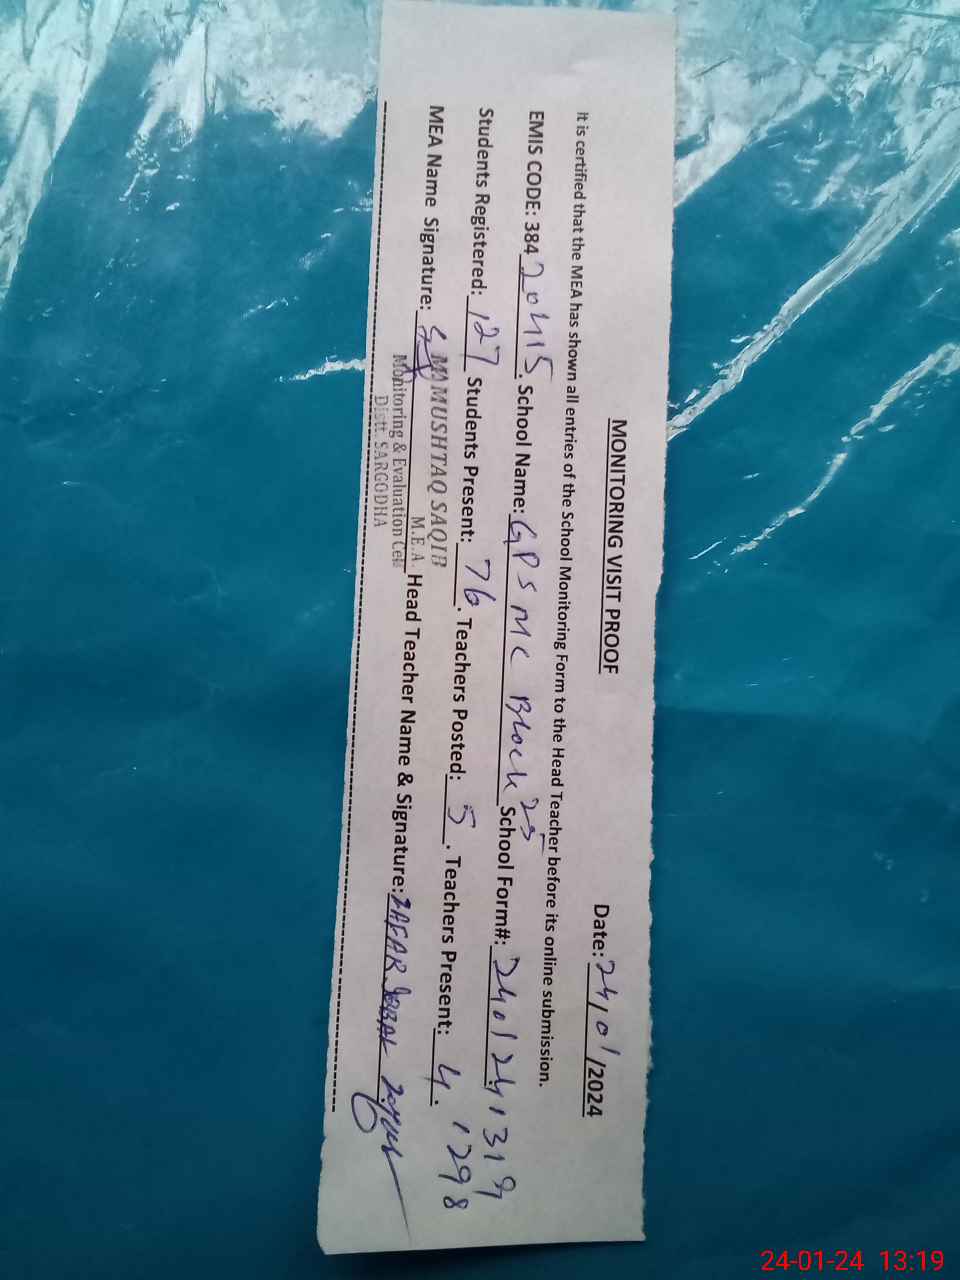 MONITORING VISIT PROOF Date: 24/01/2024
It is certified that the MEA has shown all entries of the School Monitoring Form to the Head Teacher before its online submission.
EMIS CODE: 38420415. School Name: GPS MC Block 25 School Form#: 2401241319
Students Registered: 127 Students Present: 76. Teachers Posted: 5. Teachers Present: 4. 1298
MEA Name Signature: MUSHTAQ SAQIB Head Teacher Name & Signature: ZAFAR IQBAL
M.E.A.
Monitoring & Evaluation Cell
Distt. SARGODHA
24-01-24 13:19